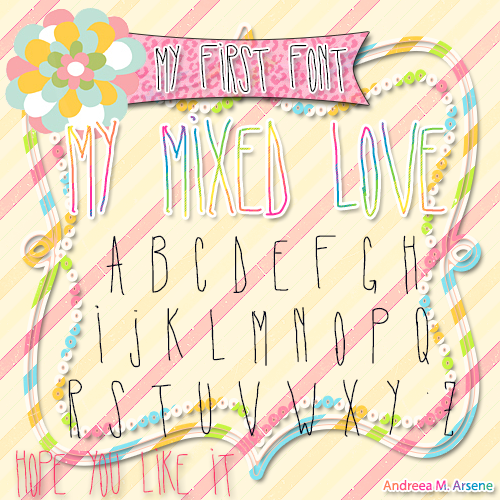 MY FIRST FONT
MY MiXED LOVE
A B C D E F G H
i j K L M N O P Q
R S T U V W X Y Z
HOPE YOU LIKE IT
Andreea M. Arsene